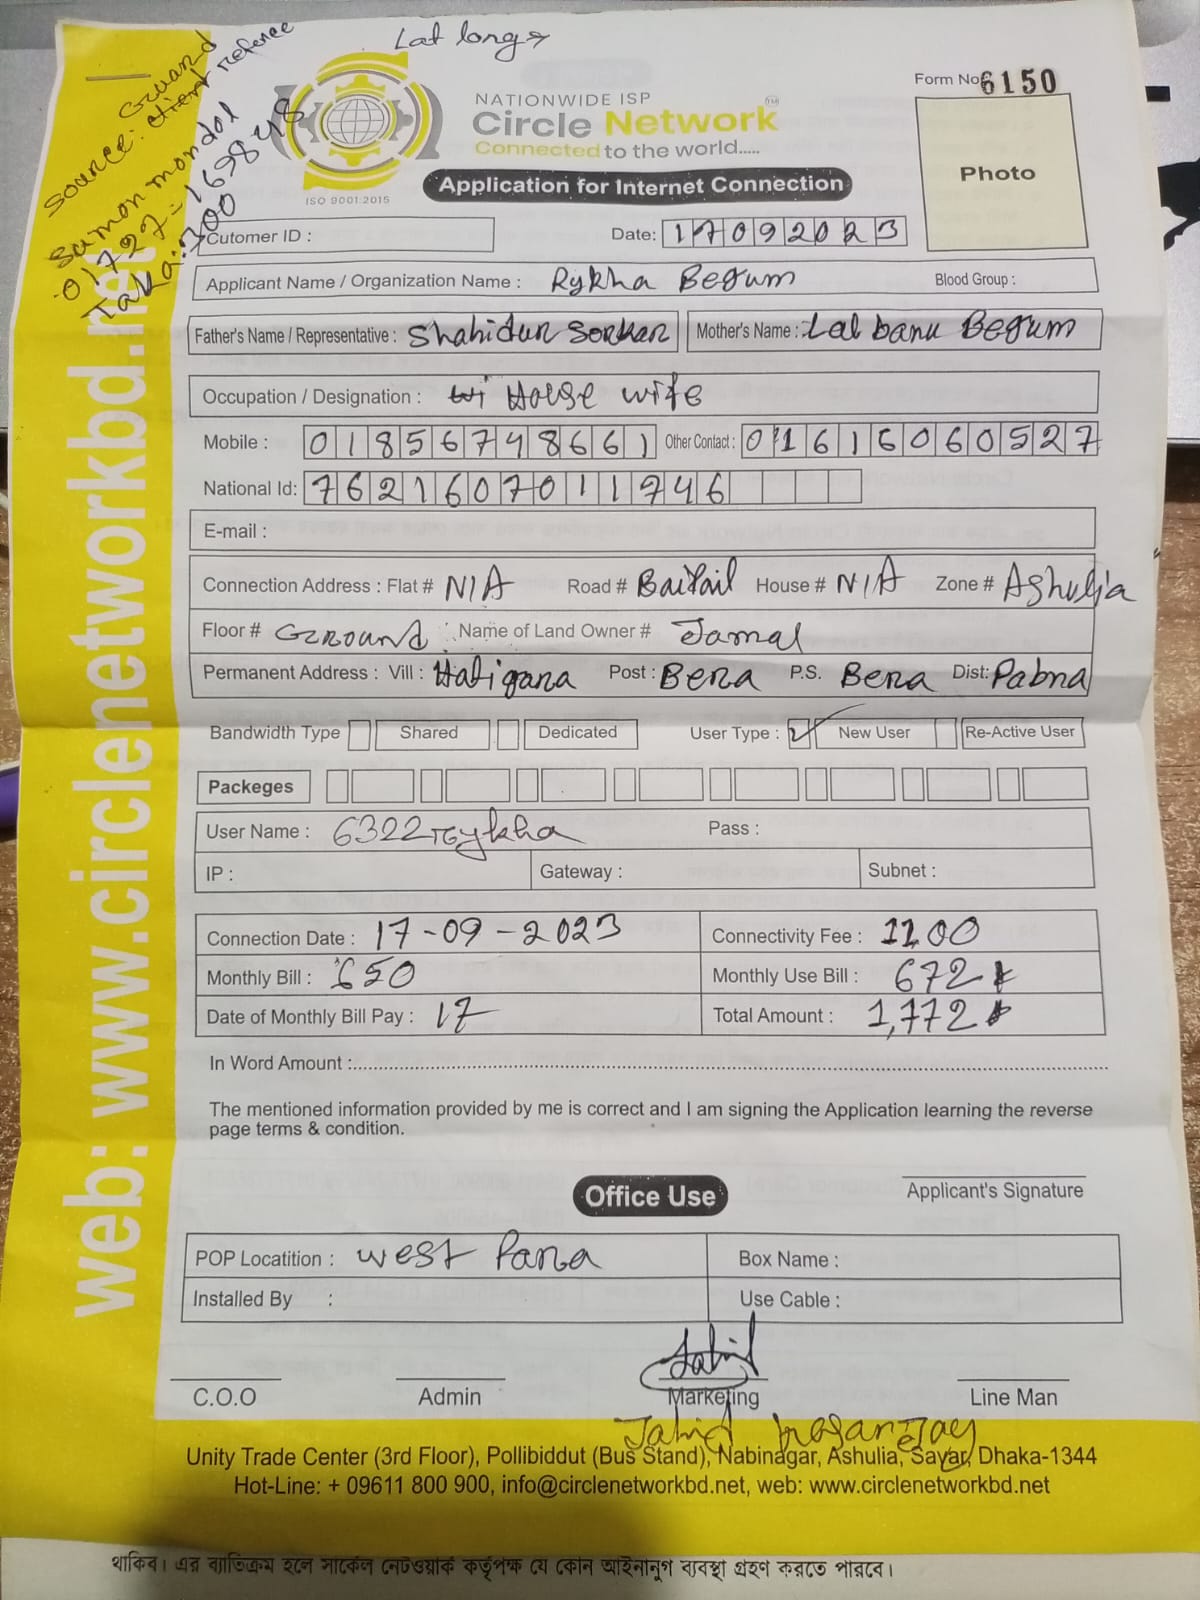 Lat long
Source: client refence
Sumon mondol
01727-169848
Taka: 300
Form No 6150
NATIONWIDE ISP
Circle Network TM
Connected to the world.....
ISO 9001:2015
Application for Internet Connection
Photo
Cutomer ID :
Date: 17092023
Applicant Name / Organization Name : Rykha Begum Blood Group :
Father's Name / Representative : Shahidur Sorkar Mother's Name : Lal banu Begum
Occupation / Designation : House wife
Mobile : 01856748661 Other Contact : 01616060527
National Id: 7621607011746
E-mail :
Connection Address : Flat # N/A Road # Baipail House # N/A Zone # Ashulia
Floor # Ground Name of Land Owner # Jamal
Permanent Address : Vill : Hatigara Post : Bera P.S. Bera Dist: Pabna
Bandwidth Type Shared Dedicated User Type : New User Re-Active User
Packeges
User Name : 6322rykha Pass :
IP : Gateway : Subnet :
Connection Date : 17-09-2023 Connectivity Fee : 1100
Monthly Bill : 650 Monthly Use Bill : 672
Date of Monthly Bill Pay : 17 Total Amount : 1,772
In Word Amount :
The mentioned information provided by me is correct and I am signing the Application learning the reverse
page terms & condition.
Office Use
Applicant's Signature
POP Locatition : West Para Box Name :
Installed By : Use Cable :
Jahid
C.O.O Admin Marketing Line Man
Jahid hasan Joy
Unity Trade Center (3rd Floor), Pollibiddut (Bus Stand), Nabinagar, Ashulia, Savar, Dhaka-1344
Hot-Line: + 09611 800 900, info@circlenetworkbd.net, web: www.circlenetworkbd.net
web: www.circlenetworkbd.net
থাকিব। এর ব্যতিক্রম হলে সার্কেল নেটওয়ার্ক কর্তৃপক্ষ যে কোন আইনানুগ ব্যবস্থা গ্রহণ করতে পারবে।